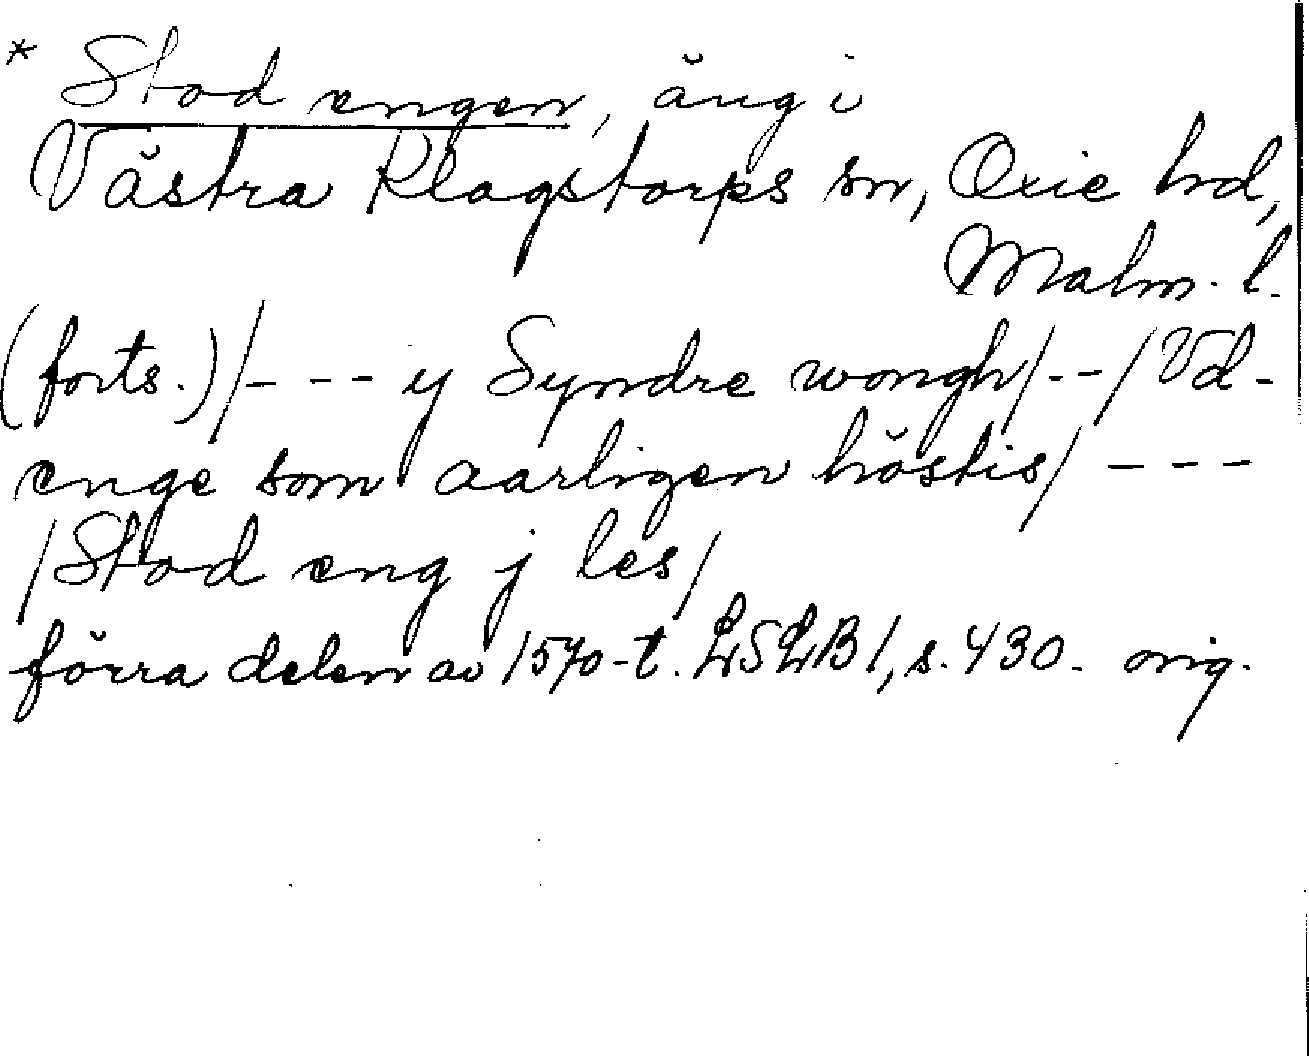 * Stod engen, äng i
Västra Klagstorps sn, Oxie hd,
Malm. l.
(forts.)/- - - y Syndre wongh/- -/Vd-
enge som aarligen höstis/ - - -
/Stod eng j les/
förra delen av 1570-t. LSLB 1, s. 430. orig.